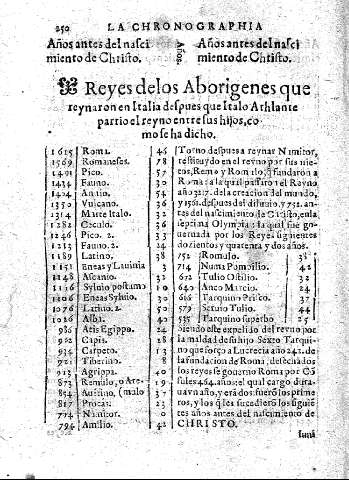 250 LA CHRONOGRAPHIA
Años antes del nasci
miento de Christo.
Años
Años antes del nasci
miento de Christo.
Reyes de los Aborigenes que
reynaron en Italia despues que Italo Athlante
partio el reyno entre sus hijos, co
mo se ha dicho.
1615 Roma. 46
1569 Romaneses. 78
1491 Pico. 57
1434 Fauno. 30
1404 Annio. 54
1350 Vulcano. 36
1314 Marte Italo. 32
1282 Ceculo. 36
1246 Pico. 2. 33
1213 Fauno. 2. 24
1189 Latino. 38
1151 Eneas y Lauinia 3
1148 Ascanio. 38
1110 Syluio postumo
1106 Eneas Syluio. 30
1076 Latino. 2. 50
1026 Alba. 40
986 Atis Egippa. 24
962 Capis. 28
934 Carpeto. 13
921 Tiberino. 8
913 Agrippa. 40
873 Remulo, o Are-
854 (malo
817 Procas. 23
794 Amilio. 42
Torno despues a reynar Numitor,
restituydo en el reyno por sus nie-
tos, Remo y Romulo, que fundaron a
Roma: a la qual passaro el Reyno
año 3217. de la creacion del mundo,
y 1561. despues del diluuio, y 752. an
tes del nascimiento de Christo, en la
septima Olympia: la qual fue go-
uernada por los Reyes siguientes
dozientos y quarenta y dos años.
752 Romulo. 38
714 Numa Pompilio. 42
672 Tulio Ostilio. 32
640 Anco Marcio. 24
616 Tarquino Prisco. 37
579 Seruio Tulio. 44
535 Tarquino superbo 25
Siendo este expelido del reyno por
la maldad de su hijo Sexto Tarqui
no que forço a Lucrecia año 242. de
la fundacion de Roma, desechados
los reyes se gouerno Roma por Cō
sules 464. años: el qual cargo dura-
ua vn año, y erā dos: fuerō los prime
ros, y los que les succedieron los siguiē
tes años antes del nascimiento de
CHRISTO.
Iuni